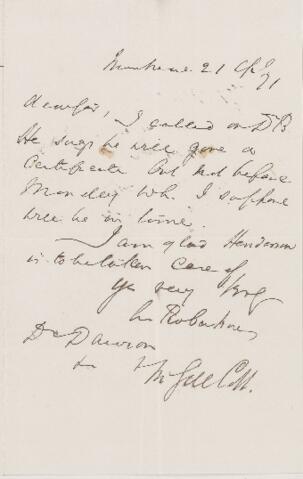 Montreal 21 Apl /71
dear Sir, I called on Dr B
He says he will give a
Certificate but not before
Monday wh. I suppose
will be in time.
I am glad Henderson
is to be taken care of
Yrs very truly
Robertson
Dr Dawson
McGill Coll.